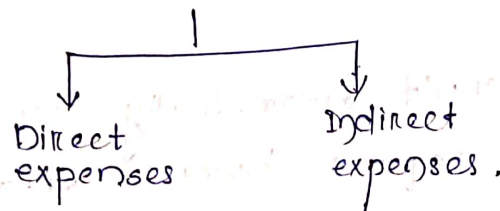 Direct
expenses
Indirect
expenses.